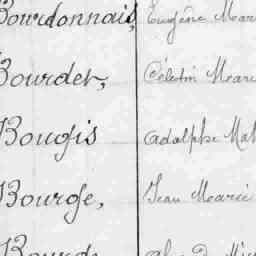 Bourdonnais, Eugène Mar
Bourder, Célestin Marie
Bougis Adolphe Mat
Bourge, Jean Marie
Bourge